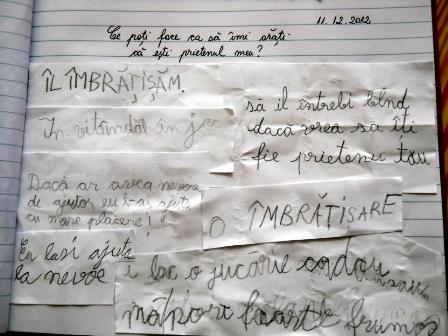 11.12.2012
Ce poți face ca să îmi arăți
că ești prietenul meu?
ÎL ÎMBRĂȚIȘĂM.
să il întrebi blnd
dacă vrea să îți
fie prietenu tău
In vitîndăl în joc
Dacă ar avea nevoe
de ajutor eu l-aș ajuta
cu mare plăcere!
O ÎMBRĂȚIȘARE
Eu lasi ajuta
la nevoe
i fac o jucărie cadou
măport foarte frumos